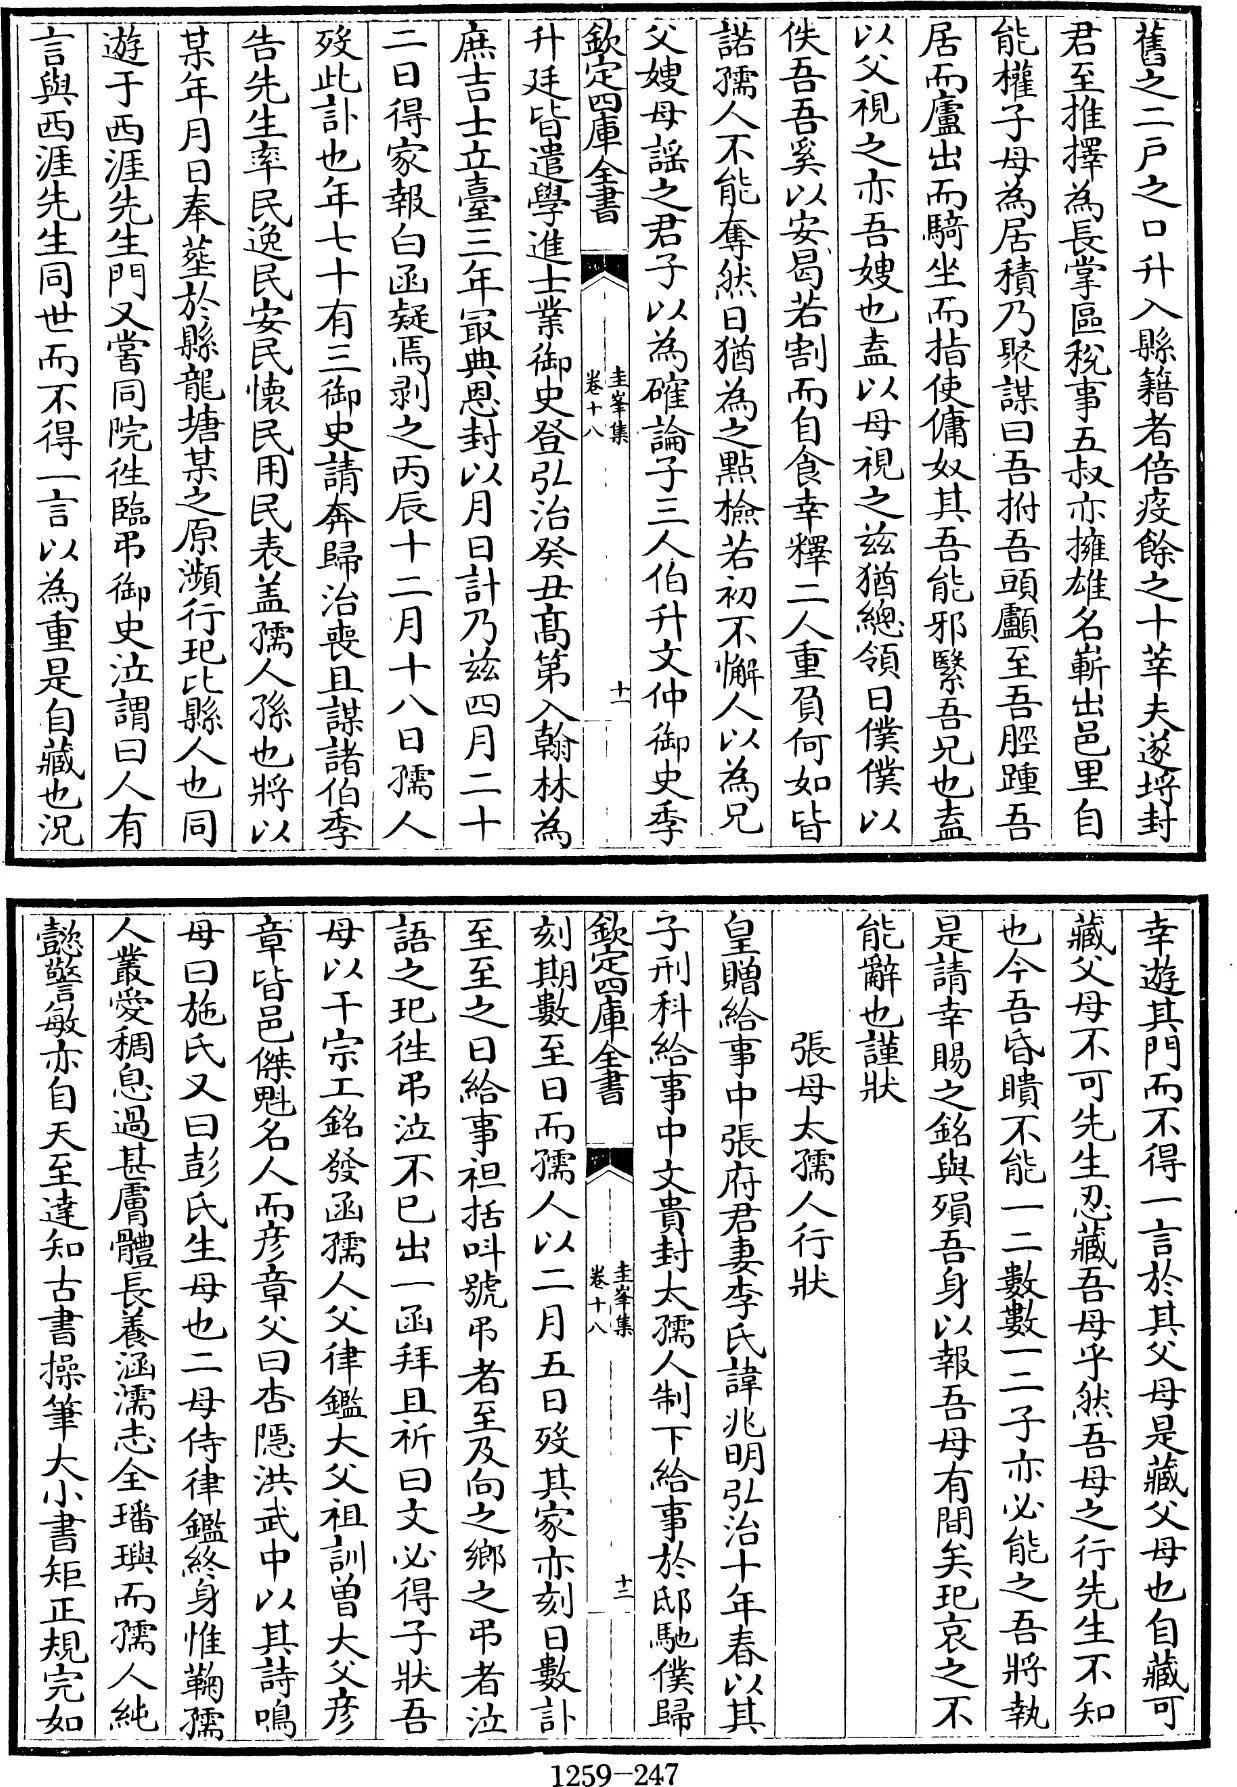 舊之二戸之口升入縣籍者倍疫餘之十莘夫遂埓封
君至推擇為長掌區稅事五叔亦擁雄名嶄出邑里自
能權子母為居積乃聚謀曰吾拊吾頭顱至吾脛踵吾
居而廬出而騎坐而指使傭奴其吾能邪繄吾兄也盍
以父視之亦吾嫂也盍以母視之兹猶總領日僕僕以
佚吾吾奚以安曷若割而自食幸釋二人重負何如皆
諾孺人不能奪然日猶為之點檢若初不懈人以為兄
父嫂母謡之君子以為確論子三人伯升文仲御史季
欽定四庫全書
圭峯集
卷十八
十一
升廷皆遣學進士業御史登弘治癸丑髙第入翰林為
庶吉士立臺三年㝡典恩封以月日計乃兹四月二十
二日得家報白函疑焉剥之丙辰十二月十八日孺人
殁此訃也年七十有三御史請奔歸治喪且謀諸伯季
告先生率民逸民安民懐民用民表盖孺人孫也將以
某年月日奉塟於縣龍塘某之原瀕行玘比縣人也同
遊于西涯先生門又嘗同院徃臨弔御史泣謂曰人有
言與西涯先生同世而不得一言以為重是自藏也況
幸遊其門而不得一言於其父母是藏父母也自藏可
藏父母不可先生忍藏吾母乎然吾母之行先生不知
也今吾昏瞶不能一二數數一二子亦必能之吾將執
是請幸賜之銘與殞吾身以報吾母有間矣玘哀之不
能辭也謹狀
張母太孺人行狀
皇贈給事中張府君妻李氏諱兆明弘治十年春以其
子刑科給事中文貴封太孺人制下給事於邸馳僕歸
欽定四庫全書
圭峯集
卷十八
十二
刻期數至日而孺人以二月五日殁其家亦刻日數訃
至至之日給事袒括呌號弔者至及向之鄉之弔者泣
語之玘徃弔泣不已出一函拜且祈曰文必得子狀吾
母以干宗工銘發函孺人父律鑑大父祖訓曾大父彦
章皆邑傑魁名人而彦章父曰杏隠洪武中以其詩鳴
母曰施氏又曰彭氏生母也二母侍律鑑終身惟鞠孺
人叢愛稠息過甚膚體長養涵濡志全璠璵而孺人純
懿警敏亦自天至達知古書操筆大小書矩正規完如
1259-247